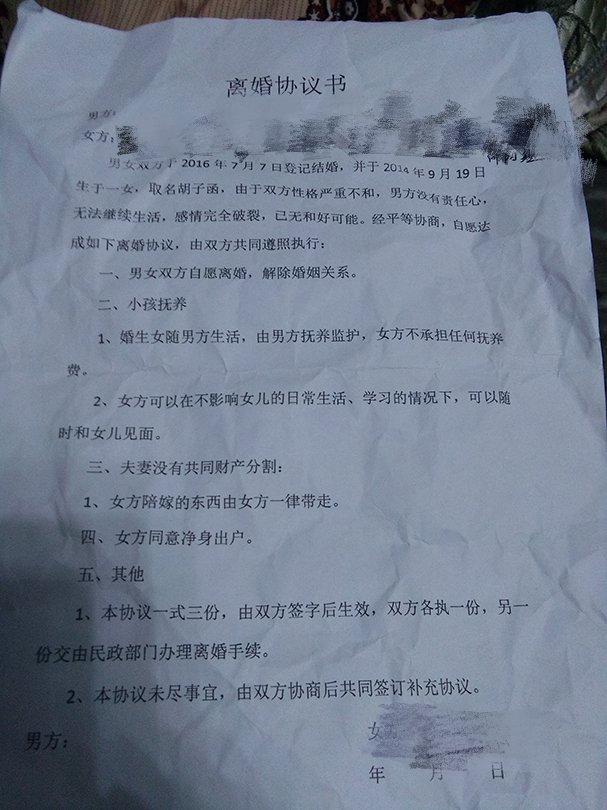 离婚协议书
男方:
女方:
男女双方于2016年7月7日登记结婚，并于2014年9月19日
生于一女，取名胡子函，由于双方性格严重不和，男方没有责任心，
无法继续生活，感情完全破裂，已无和好可能。经平等协商，自愿达
成如下离婚协议，由双方共同遵照执行：
一、男女双方自愿离婚，解除婚姻关系。
二、小孩抚养
1、婚生女随男方生活，由男方抚养监护，女方不承担任何抚养
费。
2、女方可以在不影响女儿的日常生活、学习的情况下，可以随
时和女儿见面。
三、夫妻没有共同财产分割：
1、女方陪嫁的东西由女方一律带走。
四、女方同意净身出户。
五、其他
1、本协议一式三份，由双方签字后生效，双方各执一份，另一
份交由民政部门办理离婚手续。
2、本协议未尽事宜，由双方协商后共同签订补充协议。
男方： 女
年 月 日